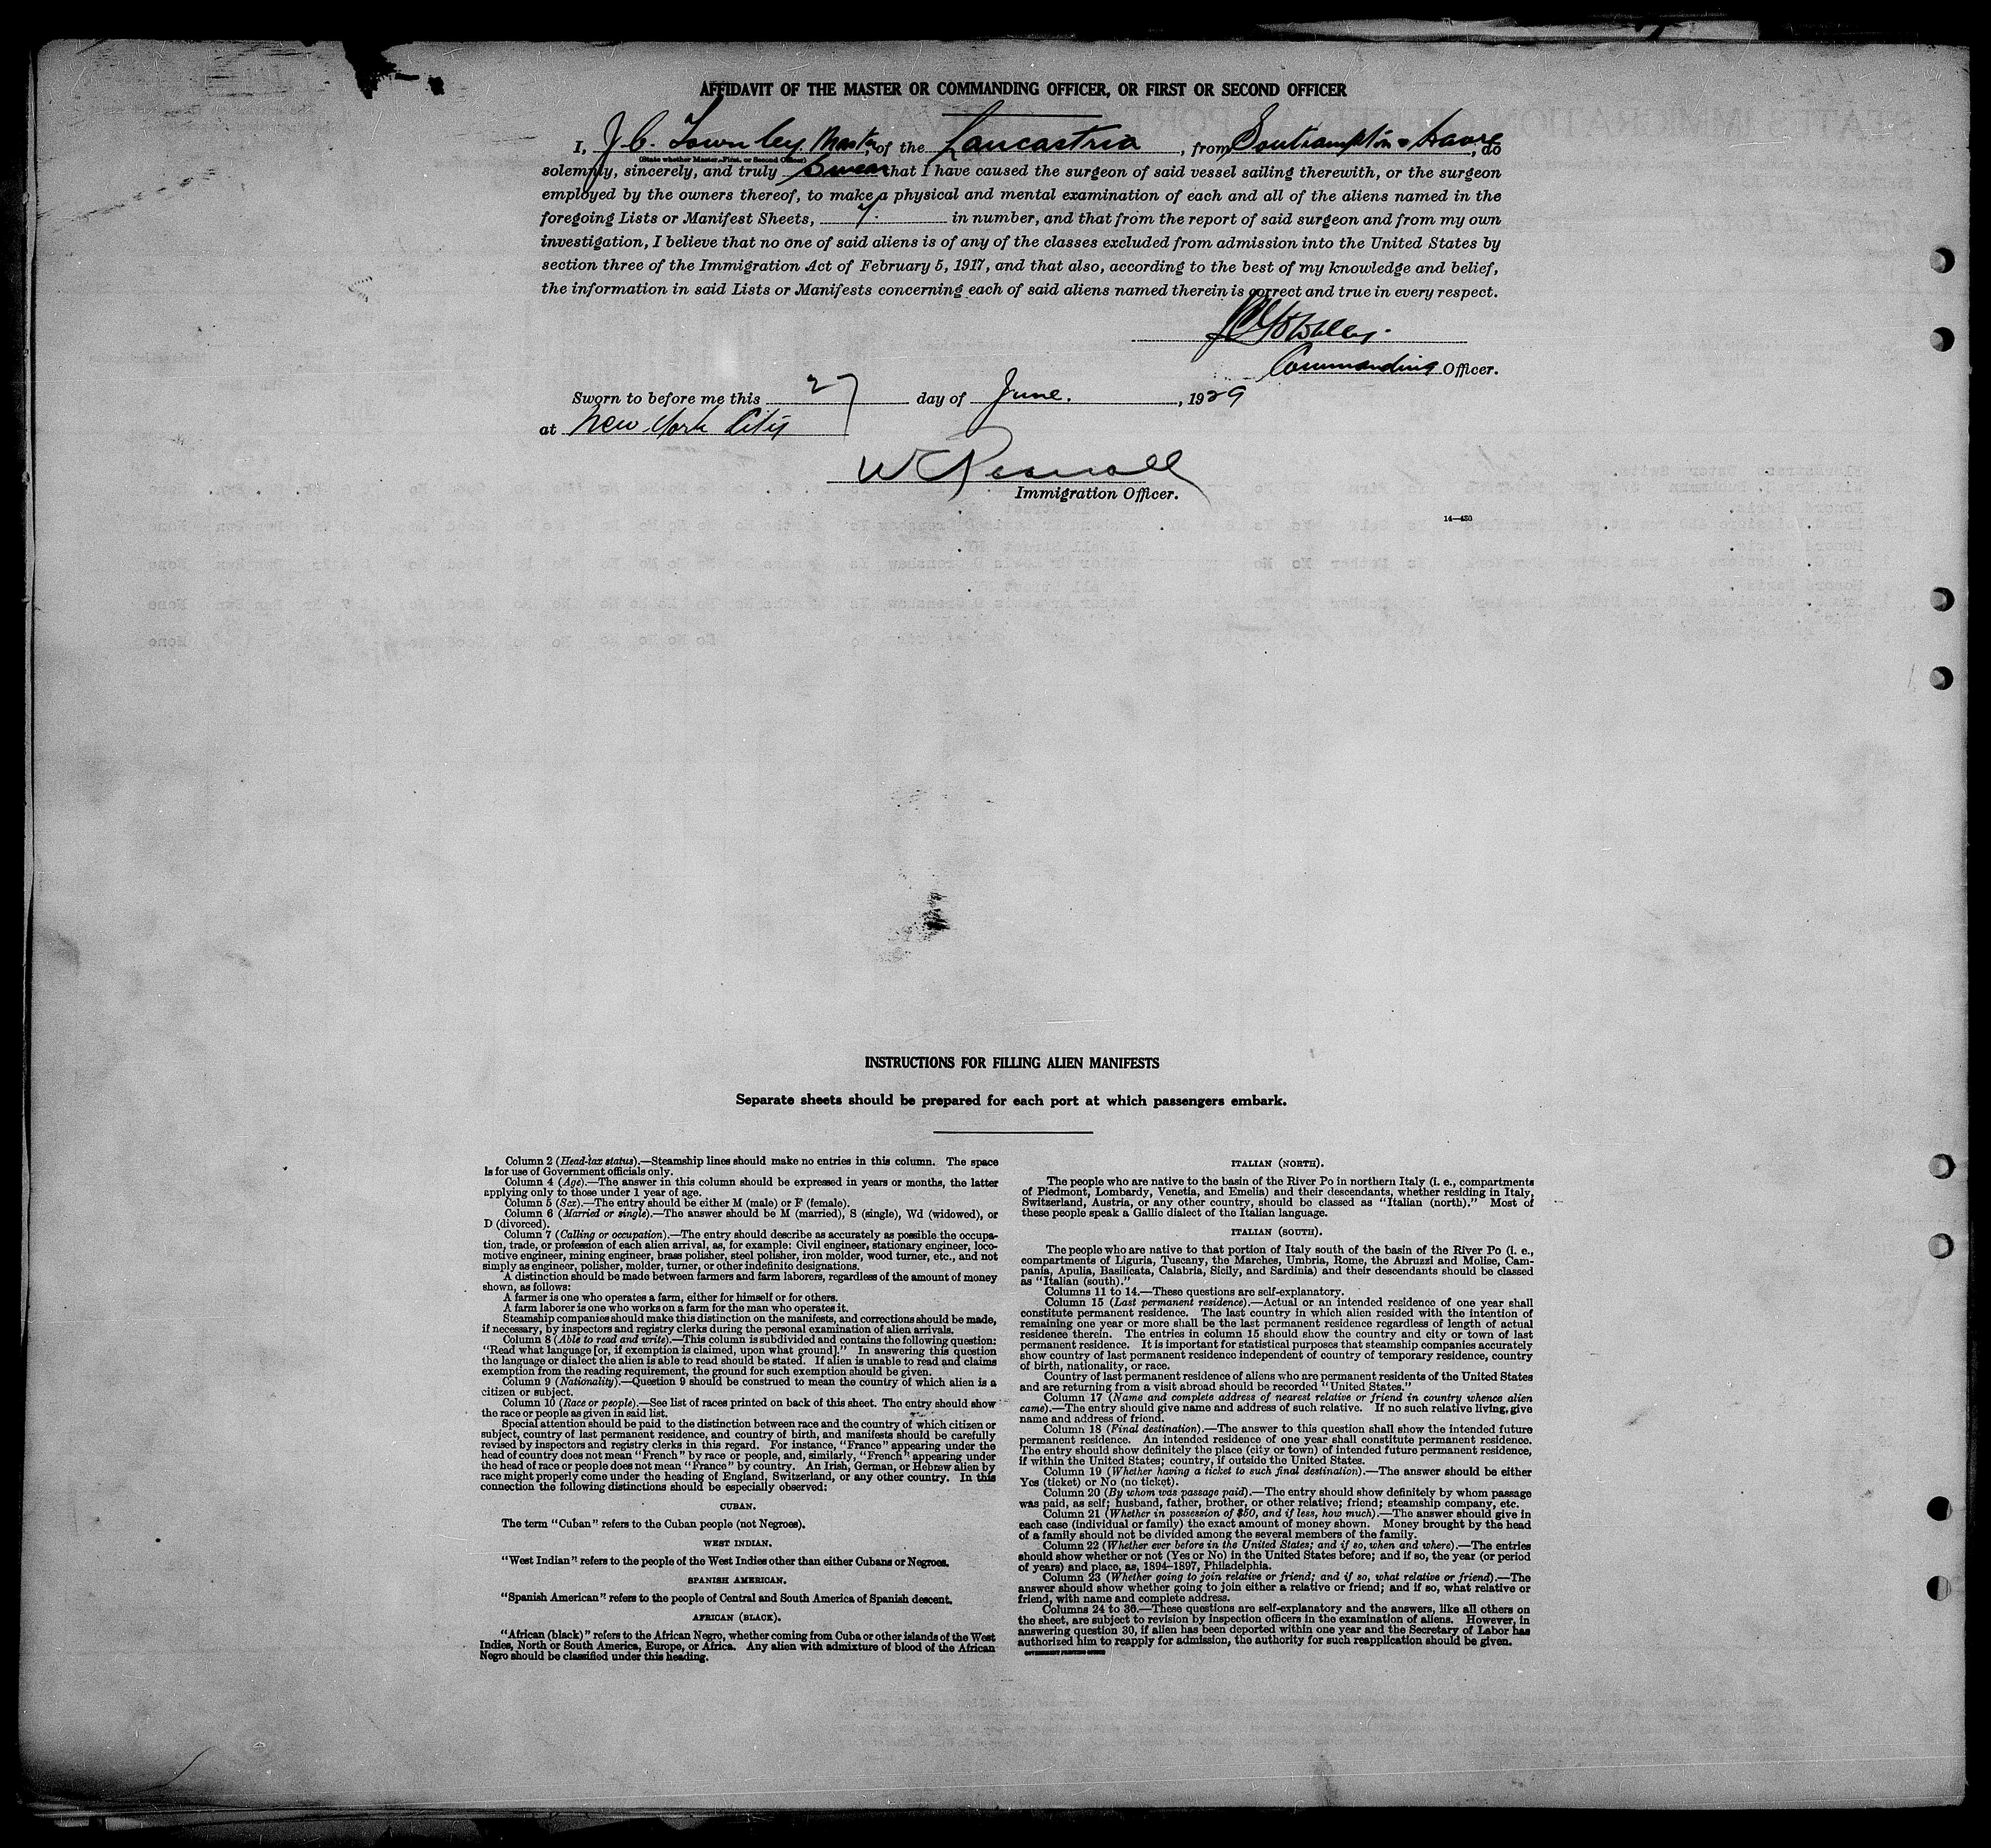 AFFIDAVIT OF THE MASTER OR COMMANDING OFFICER, OR FIRST OR SECOND OFFICER
I, J. C. Townley, Master, of the Lancastria, from Southampton & Havre, do
(State whether Master, First, or Second Officer)
solemnly, sincerely, and truly Swear that I have caused the surgeon of said vessel sailing therewith, or the surgeon
employed by the owners thereof, to make a physical and mental examination of each and all of the aliens named in the
foregoing Lists or Manifest Sheets, in number, and that from the report of said surgeon and from my own
investigation, I believe that no one of said aliens is of any of the classes excluded from admission into the United States by
section three of the Immigration Act of February 5, 1917, and that also, according to the best of my knowledge and belief,
the information in said Lists or Manifests concerning each of said aliens named therein is correct and true in every respect.
Commanding Officer.
Sworn to before me this 27 day of June., 1929
at New York City
Immigration Officer.
14—430
INSTRUCTIONS FOR FILLING ALIEN MANIFESTS
Separate sheets should be prepared for each port at which passengers embark.
Column 2 (Head-tax status).—Steamship lines should make no entries in this column. The space
is for use of Government officials only.
Column 4 (Age).—The answer in this column should be expressed in years or months, the latter
applying only to those under 1 year of age.
Column 5 (Sex).—The entry should be either M (male) or F (female).
Column 6 (Married or single).—The answer should be M (married), S (single), Wd (widowed), or
D (divorced).
Column 7 (Calling or occupation).—The entry should describe as accurately as possible the occupa-
tion, trade, or profession of each alien arrival, as, for example: Civil engineer, stationary engineer, loco-
motive engineer, mining engineer, brass polisher, steel polisher, iron molder, wood turner, etc., and not
simply as engineer, polisher, molder, turner, or other indefinite designations.
A distinction should be made between farmers and farm laborers, regardless of the amount of money
shown, as follows:
A farmer is one who operates a farm, either for himself or for others.
A farm laborer is one who works on a farm for the man who operates it.
Steamship companies should make this distinction on the manifests, and corrections should be made,
if necessary, by inspectors and registry clerks during the personal examination of alien arrivals.
Column 8 (Able to read and write).—This column is subdivided and contains the following question:
"Read what language [or, if exemption is claimed, upon what ground]." In answering this question
the language or dialect the alien is able to read should be stated. If alien is unable to read and claims
exemption from the reading requirement, the ground for such exemption should be given.
Column 9 (Nationality).—Question 9 should be construed to mean the country of which alien is a
citizen or subject.
Column 10 (Race or people).—See list of races printed on back of this sheet. The entry should show
the race or people as given in said list.
Special attention should be paid to the distinction between race and the country of which citizen or
subject, country of last permanent residence, and country of birth, and manifests should be carefully
revised by inspectors and registry clerks in this regard. For instance, "France" appearing under the
head of country does not mean "French" by race or people, and, similarly, "French" appearing under
the head of race or people does not mean "France" by country. An Irish, German, or Hebrew alien by
race might properly come under the heading of England, Switzerland, or any other country. In this
connection the following distinctions should be especially observed:
CUBAN.
The term "Cuban" refers to the Cuban people (not Negroes).
WEST INDIAN.
"West Indian" refers to the people of the West Indies other than either Cubans or Negroes.
SPANISH AMERICAN.
"Spanish American" refers to the people of Central and South America of Spanish descent.
AFRICAN (BLACK).
"African (black)" refers to the African Negro, whether coming from Cuba or other islands of the West
Indies, North or South America, Europe, or Africa. Any alien with admixture of blood of the African
Negro should be classified under this heading.
ITALIAN (NORTH).
The people who are native to the basin of the River Po in northern Italy (i. e., compartments
of Piedmont, Lombardy, Venetia, and Emelia) and their descendants, whether residing in Italy,
Switzerland, Austria, or any other country, should be classed as "Italian (north)." Most of
these people speak a Gallic dialect of the Italian language.
ITALIAN (SOUTH).
The people who are native to that portion of Italy south of the basin of the River Po (i. e.,
compartments of Liguria, Tuscany, the Marches, Umbria, Rome, the Abruzzi and Molise, Cam-
pania, Apulia, Basilicata, Calabria, Sicily, and Sardinia) and their descendants should be classed
as "Italian (south)."
Columns 11 to 14.—These questions are self-explanatory.
Column 15 (Last permanent residence).—Actual or an intended residence of one year shall
constitute permanent residence. The last country in which alien resided with the intention of
remaining one year or more shall be the last permanent residence regardless of length of actual
residence therein. The entries in column 15 should show the country and city or town of last
permanent residence. It is important for statistical purposes that steamship companies accurately
show country of last permanent residence independent of country of temporary residence, country
of birth, nationality, or race.
Country of last permanent residence of aliens who are permanent residents of the United States
and are returning from a visit abroad should be recorded "United States."
Column 17 (Name and complete address of nearest relative or friend in country whence alien
came).—The entry should give name and address of such relative. If no such relative living, give
name and address of friend.
Column 18 (Final destination).—The answer to this question shall show the intended future
permanent residence. An intended residence of one year shall constitute permanent residence.
The entry should show definitely the place (city or town) of intended future permanent residence,
if within the United States; country, if outside the United States.
Column 19 (Whether having a ticket to such final destination).—The answer should be either
Yes (ticket) or No (no ticket).
Column 20 (By whom was passage paid).—The entry should show definitely by whom passage
was paid, as self; husband, father, brother, or other relative; friend; steamship company, etc.
Column 21 (Whether in possession of $50, and if less, how much).—The answer should give in
each case (individual or family) the exact amount of money shown. Money brought by the head
of a family should not be divided among the several members of the family.
Column 22 (Whether ever before in the United States; and if so, when and where).—The entries
should show whether or not (Yes or No) in the United States before; and if so, the year (or period
of years) and place, as, 1894-1897, Philadelphia.
Column 23 (Whether going to join relative or friend; and if so, what relative or friend).—The
answer should show whether going to join either a relative or friend; and if so, what relative or
friend, with name and complete address.
Columns 24 to 36.—These questions are self-explanatory and the answers, like all others on
the sheet, are subject to revision by inspection officers in the examination of aliens. However, in
answering question 30, if alien has been deported within one year and the Secretary of Labor has
authorized him to reapply for admission, the authority for such reapplication should be given.
GOVERNMENT PRINTING OFFICE